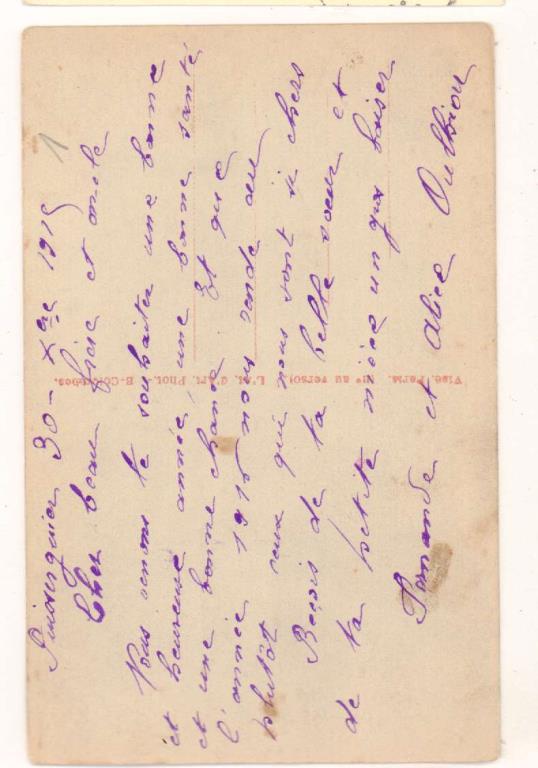 Puisserguier 30 – Xbre 1915
Cher beau frère et oncle
Nous venons te souhaiter une bonne
et heureuse année, une bonne santé
et une bonne chance. Et que
l'année 1916 nous rende au
plutôt ceux qui nous sont si chers
Reçois de ta belle soeur et
de ta petite nièce un gros baiser
et Alice
Visé, Paris. Nº au verso. L'At. d'Art. Phot. B-Colombes.
1